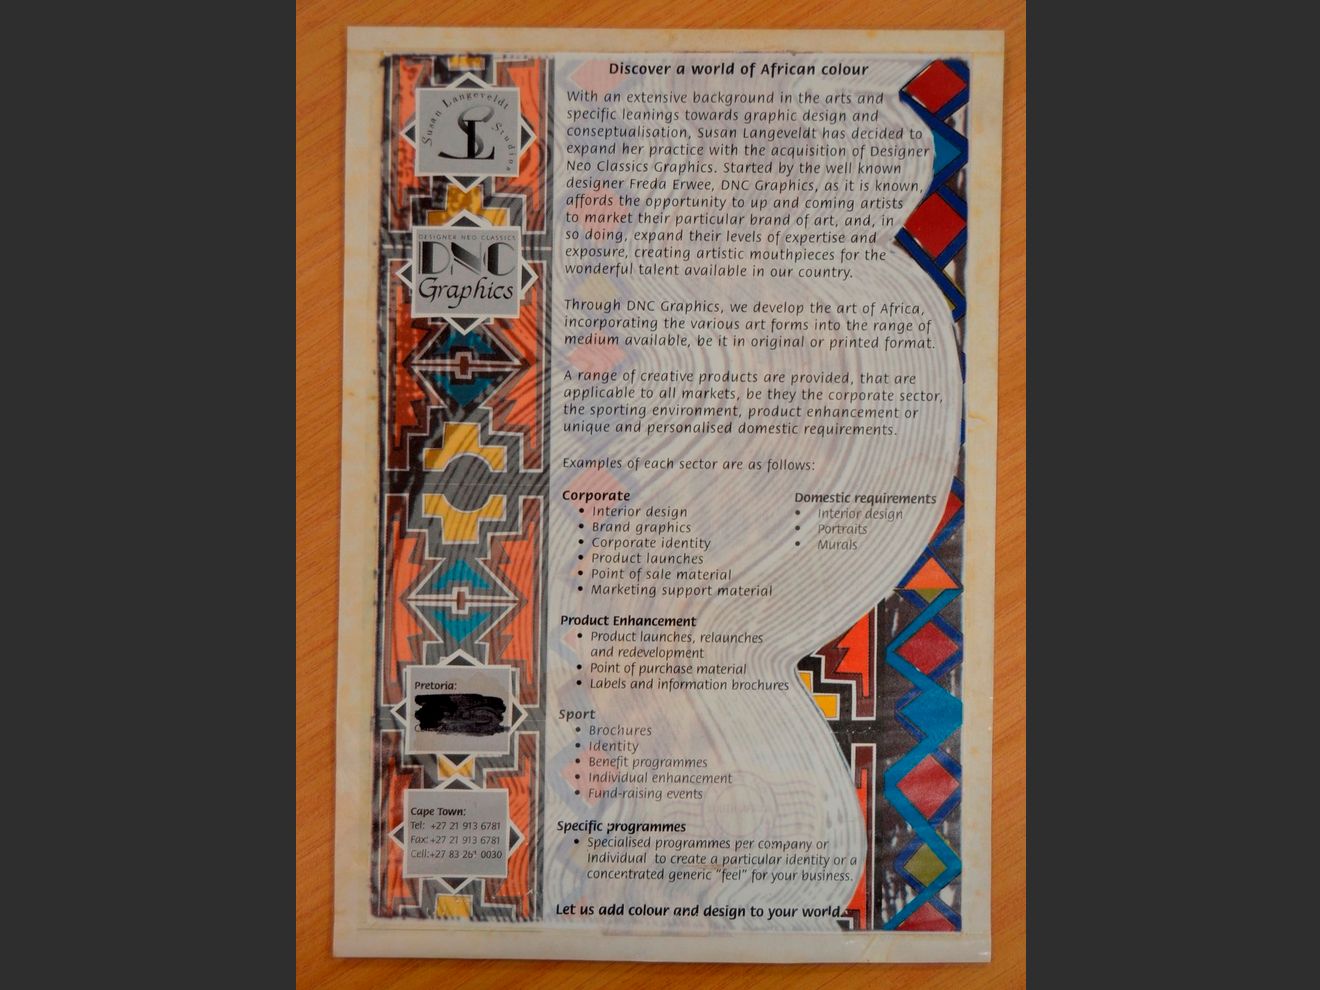 Susan Langeveldt Studios
SL
DESIGNER NEO CLASSICS
DNC
Graphics
Pretoria:
Cape Town:
Tel: +27 21 913 6781
Fax: +27 21 913 6781
Cell:+27 83 0030
Discover a world of African colour
With an extensive background in the arts and
specific leanings towards graphic design and
conseptualisation, Susan Langeveldt has decided to
expand her practice with the acquisition of Designer
Neo Classics Graphics. Started by the well known
designer Freda Erwee, DNC Graphics, as it is known,
affords the opportunity to up and coming artists
to market their particular brand of art, and, in
so doing, expand their levels of expertise and
exposure, creating artistic mouthpieces for the
wonderful talent available in our country.
Through DNC Graphics, we develop the art of Africa,
incorporating the various art forms into the range of
medium available, be it in original or printed format.
A range of creative products are provided, that are
applicable to all markets, be they the corporate sector,
the sporting environment, product enhancement or
unique and personalised domestic requirements.
Examples of each sector are as follows:
Corporate
• Interior design
• Brand graphics
• Corporate identity
• Product launches
• Point of sale material
• Marketing support material
Domestic requirements
• Interior design
• Portraits
• Murals
Product Enhancement
• Product launches, relaunches
and redevelopment
• Point of purchase material
• Labels and information brochures
Sport
• Brochures
• Identity
• Benefit programmes
• Individual enhancement
• Fund-raising events
Specific programmes
• Specialised programmes per company or
Individual to create a particular identity or a
concentrated generic "feel" for your business.
Let us add colour and design to your world.